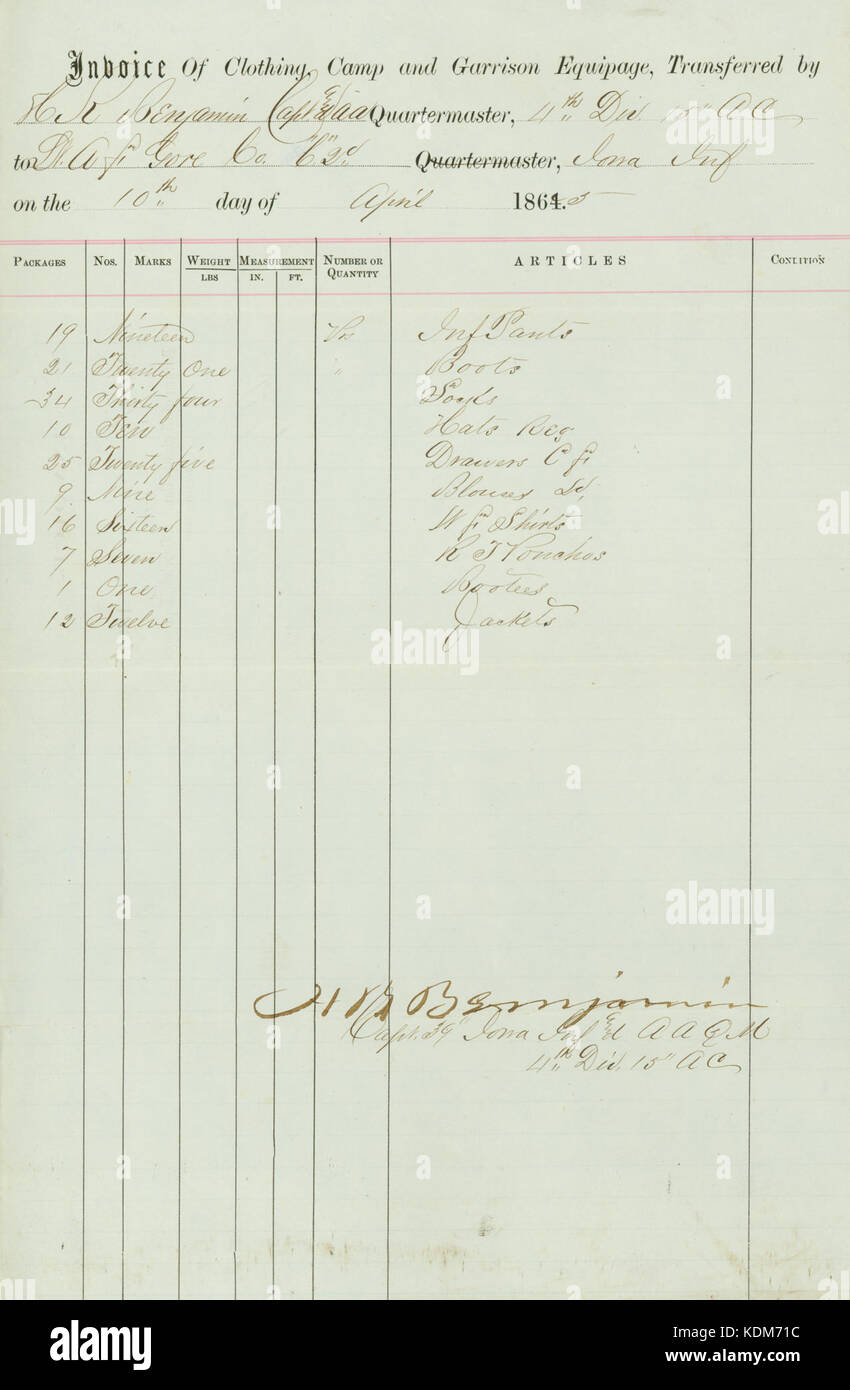 Invoice Of Clothing, Camp and Garrison Equipage, Transferred by
H K Benjamin Capt & AA Quartermaster, 4th Div 15" A C
to Lt. A F Gore Co. "C" 2d Quartermaster, Iowa Inf
on the 10th day of April 1864.5
PACKAGES NOS. MARKS WEIGHT LBS MEASUREMENT IN. FT. NUMBER OR QUANTITY ARTICLES CONDITION
19 Nineteen Prs Inf Pants
21 Twenty One " Boots
34 Thirty four Socks
10 Ten Hats Reg
25 Twenty five Drawers C F
9 Nine Blouses Ld,
16 Sixteen W F Shirts
7 Seven R T Ponchos
1 One Bootees
12 Twelve Jackets
H K Benjamin
Capt. 39" Iowa Inf & A A Q M
4th Div. 15" A C
a alamy
alamy
Image ID: KDM71C
www.alamy.com